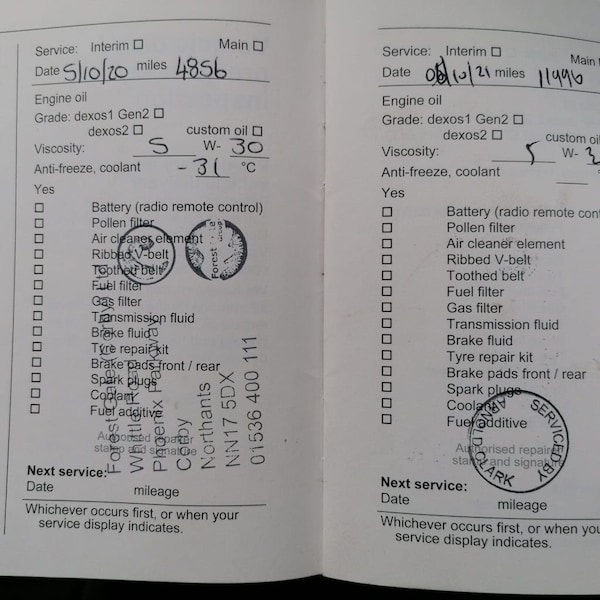 Service: Interim ☐ Main ☐
Date 5/10/20 miles 4856
Engine oil
Grade: dexos1 Gen2 ☐
dexos2 ☐ custom oil ☐
Viscosity: 5 W- 30
Anti-freeze, coolant -31 °C
Yes
☐ Battery (radio remote control)
☐ Pollen filter
☐ Air cleaner element
☐ Ribbed V-belt
☐ Toothed belt
☐ Fuel filter
☐ Gas filter
☐ Transmission fluid
☐ Brake fluid
☐ Tyre repair kit
☐ Brake pads front / rear
☐ Spark plugs
☐ Coolant
☐ Fuel additive
Authorised repairer
stamp and signature
Forest Gate
Group
Forest Gate Corby Ltd
Phoenix Parkway
Corby
Northants
NN17 5DX
01536 400 111
Next service:
Date mileage
Whichever occurs first, or when your
service display indicates.
Service: Interim ☐ Main
Date 06/10/21 miles 11996
Engine oil
Grade: dexos1 Gen2 ☐
dexos2 ☐ custom oil
Viscosity: 5 W- 3
Anti-freeze, coolant °
Yes
☐ Battery (radio remote cont
☐ Pollen filter
☐ Air cleaner element
☐ Ribbed V-belt
☐ Toothed belt
☐ Fuel filter
☐ Gas filter
☐ Transmission fluid
☐ Brake fluid
☐ Tyre repair kit
☐ Brake pads front / rear
☐ Spark plugs
☐ Coolant
☐ Fuel additive
SERVICED BY
ARNOLD CLARK
Authorised repaire
stamp and signature
Next service:
Date mileage
Whichever occurs first, or when you
service display indicates.